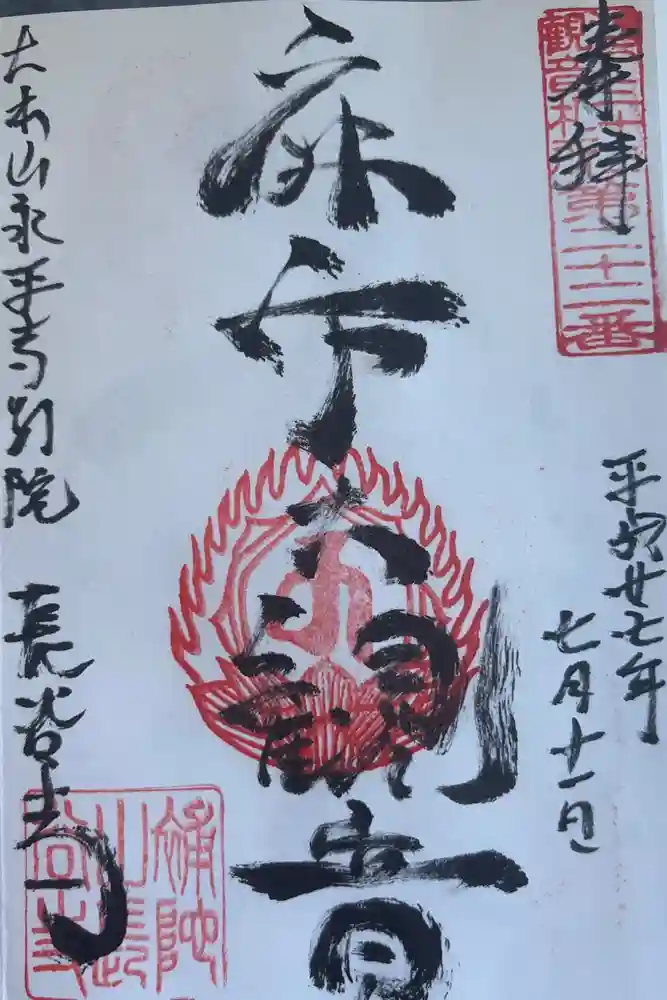 奉拝
第二十二番
平成廿七年
七月十一日
麻布大観音
大本山永平寺別院 長谷寺